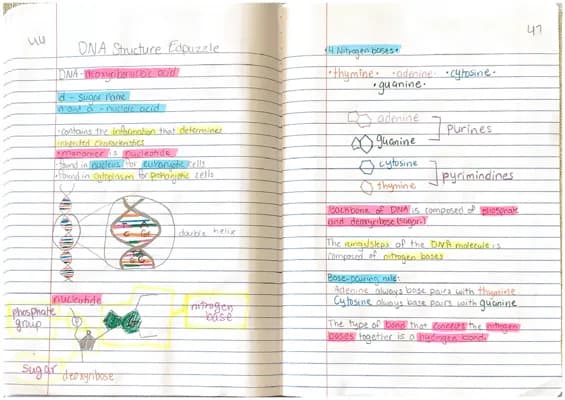 44
DNA Structure Edpuzzle
DNA - deoxyribonucleic acid
d - sugar name
n and a - nucleic acid
• contains the information that determines
inherited characteristics
• monomer is nucleotide
• found in nucleus for eukaryotic cells
• found in cytoplasm for prokaryotic cells
double helix
nucleotide
phosphate
group
nitrogen
base
sugar
deoxyribose
47
• 4 Nitrogen bases •
• thymine • • adenine • • cytosine •
• guanine •
adenine
guanine
purines
cytosine
thymine
pyrimindines
Backbone of DNA is composed of phosphate
and deoxyribose (sugar)
The rungs/steps of the DNA molecule is
composed of nitrogen bases
Base-pairing rule:
Adenine always base pairs with thymine
Cytosine always base pairs with guanine
The type of bond that connects the nitrogen
bases together is a hydrogen bond.